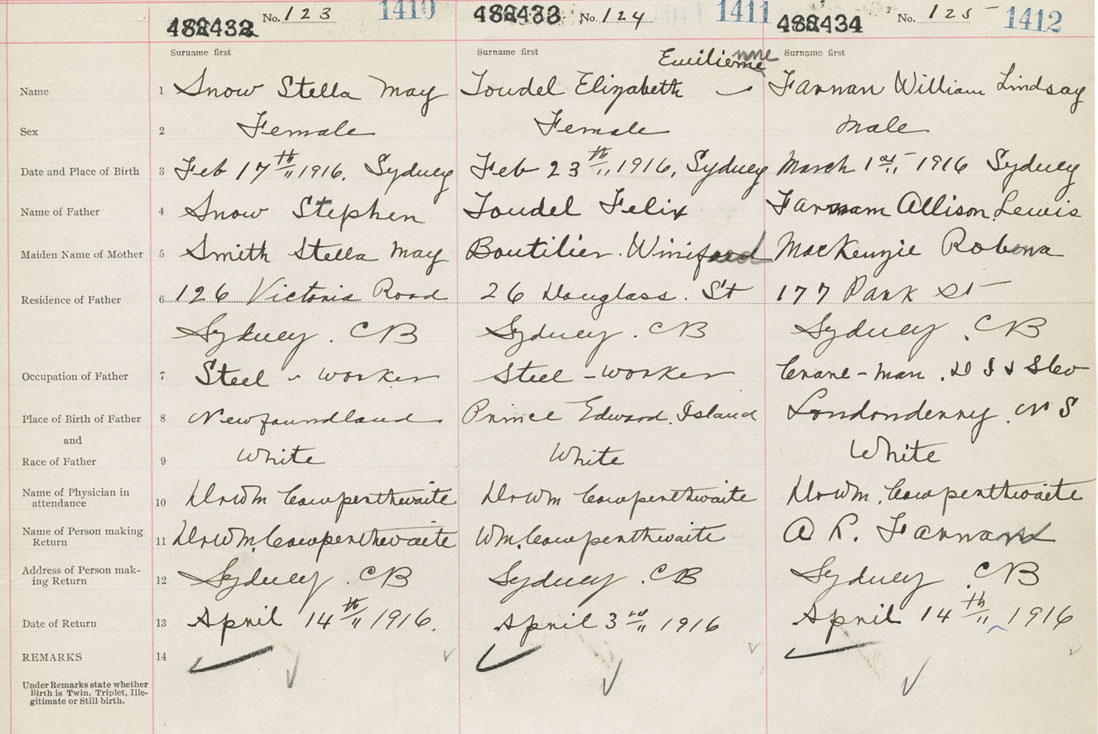 482432 No. 123 1410 482433 No. 124 1411 482434 No. 125 1412
Surname first Surname first Surname first
Emilienne
Name 1 Snow Stella May Toudel Elizabeth Farnan William Lindsay
Sex 2 Female Female Male
Date and Place of Birth 3 Feb 17th 1916. Sydney Feb 23th 1916, Sydney March 1st 1916 Sydney
Name of Father 4 Snow Stephen Toudel Felix Farnam Allison Lewis
Maiden Name of Mother 5 Smith Stella May Boutilier. Winifred MacKenzie Robena
Residence of Father 6 126 Victoria Road 26 Douglass. St 177 Park St
Sydney. CB Sydney. CB Sydney. CB
Occupation of Father 7 Steel - worker Steel - worker Crane - man. D I & S Co
Place of Birth of Father 8 Newfoundland Prince Edward Island Londonderry. N S
and
Race of Father 9 White White White
Name of Physician in 10 Dr Wm Cowperthwaite Dr Wm Cowperthwaite Dr Wm. Cowperthwaite
attendance
Name of Person making 11 Dr Wm. Cowperthwaite Wm. Cowperthwaite A L. Farnam
Return
Address of Person mak- 12 Sydney. CB Sydney. CB Sydney. CB
ing Return
Date of Return 13 April 14th 1916. April 3rd 1916 April 14th 1916
REMARKS 14
Under Remarks state whether
Birth is Twin, Triplet, Ille-
gitimate or Still-birth.